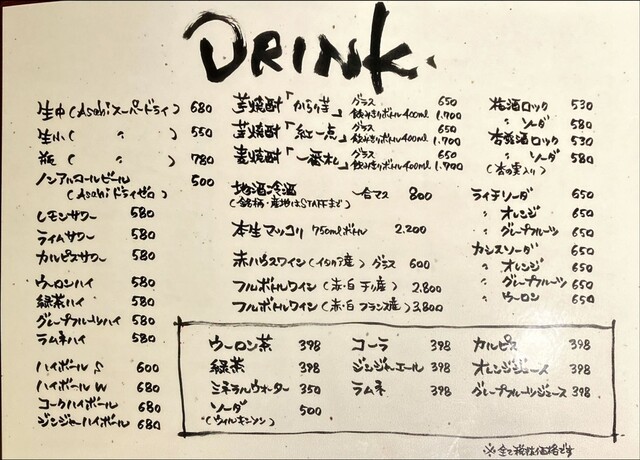 DRINK
生中(Asahiスーパードライ) 680
生小( 〃 ) 550
瓶( 〃 ) 780
ノンアルコールビール 500
(Asahiドライゼロ)
レモンサワー 580
ライムサワー 580
カルピスサワー 580
ウーロンハイ 580
緑茶ハイ 580
グレープフルーツハイ 580
ラムネハイ 580
ハイボール S 600
ハイボール W 680
コークハイボール 680
ジンジャーハイボール 680
芋焼酎「からり芋」 グラス 650
飲みきりボトル400ml 1,700
芋焼酎「紅一点」 グラス 650
飲みきりボトル400ml 1,700
麦焼酎「一番札」 グラス 650
飲みきりボトル400ml 1,700
地酒冷酒 一合マス 800
(銘柄・産地はSTAFFまで)
本生マッコリ 750mlボトル 2,200
赤ハウスワイン(イタリア産) グラス 600
フルボトルワイン(赤・白 チリ産) 2,800
フルボトルワイン(赤・白 フランス産) 3,800
梅酒ロック 530
〃 ソーダ 580
杏露酒ロック 530
〃 ソーダ 580
(杏の実入り)
ライチソーダ 650
〃 オレンジ 650
〃 グレープフルーツ 650
カシスソーダ 650
〃 オレンジ 650
〃 グレープフルーツ 650
〃 ウーロン 650
ウーロン茶 398
緑茶 398
ミネラルウォーター 350
ソーダ 500
(ウィルキンソン)
コーラ 398
ジンジャエール 398
ラムネ 398
カルピス 398
オレンジジュース 398
グレープフルーツジュース 398
※全て税性価格です